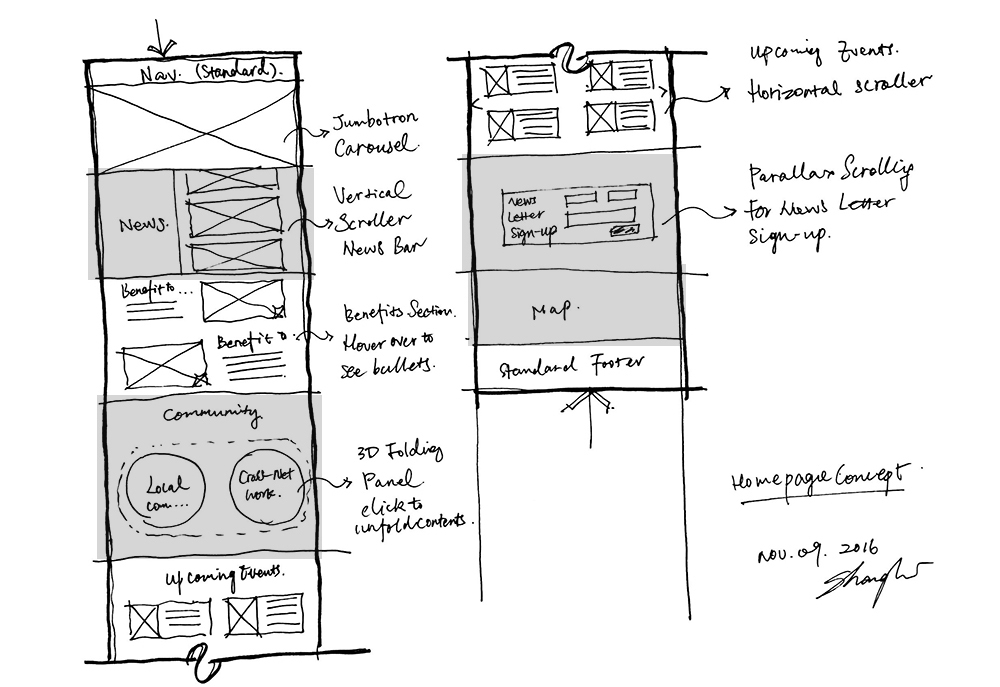 Nav. (Standard).
Jumbotron
Carousel.
News.
Vertical
Scroller
News Bar
Benefit to ...
Benefit to
Benefits Section.
Hover over to
see bullets.
Community
Local
com....
Craft Net
work.
3D Folding
Panel
click to
unfold contents.
Upcoming Events.
Upcoming Events.
Horizontal scroller
News
Letter
Sign-up
Parallax Scrollig
for News Letter
Sign-up.
Map.
Standard Footer
Homepage Concept.
Nov. 09. 2016